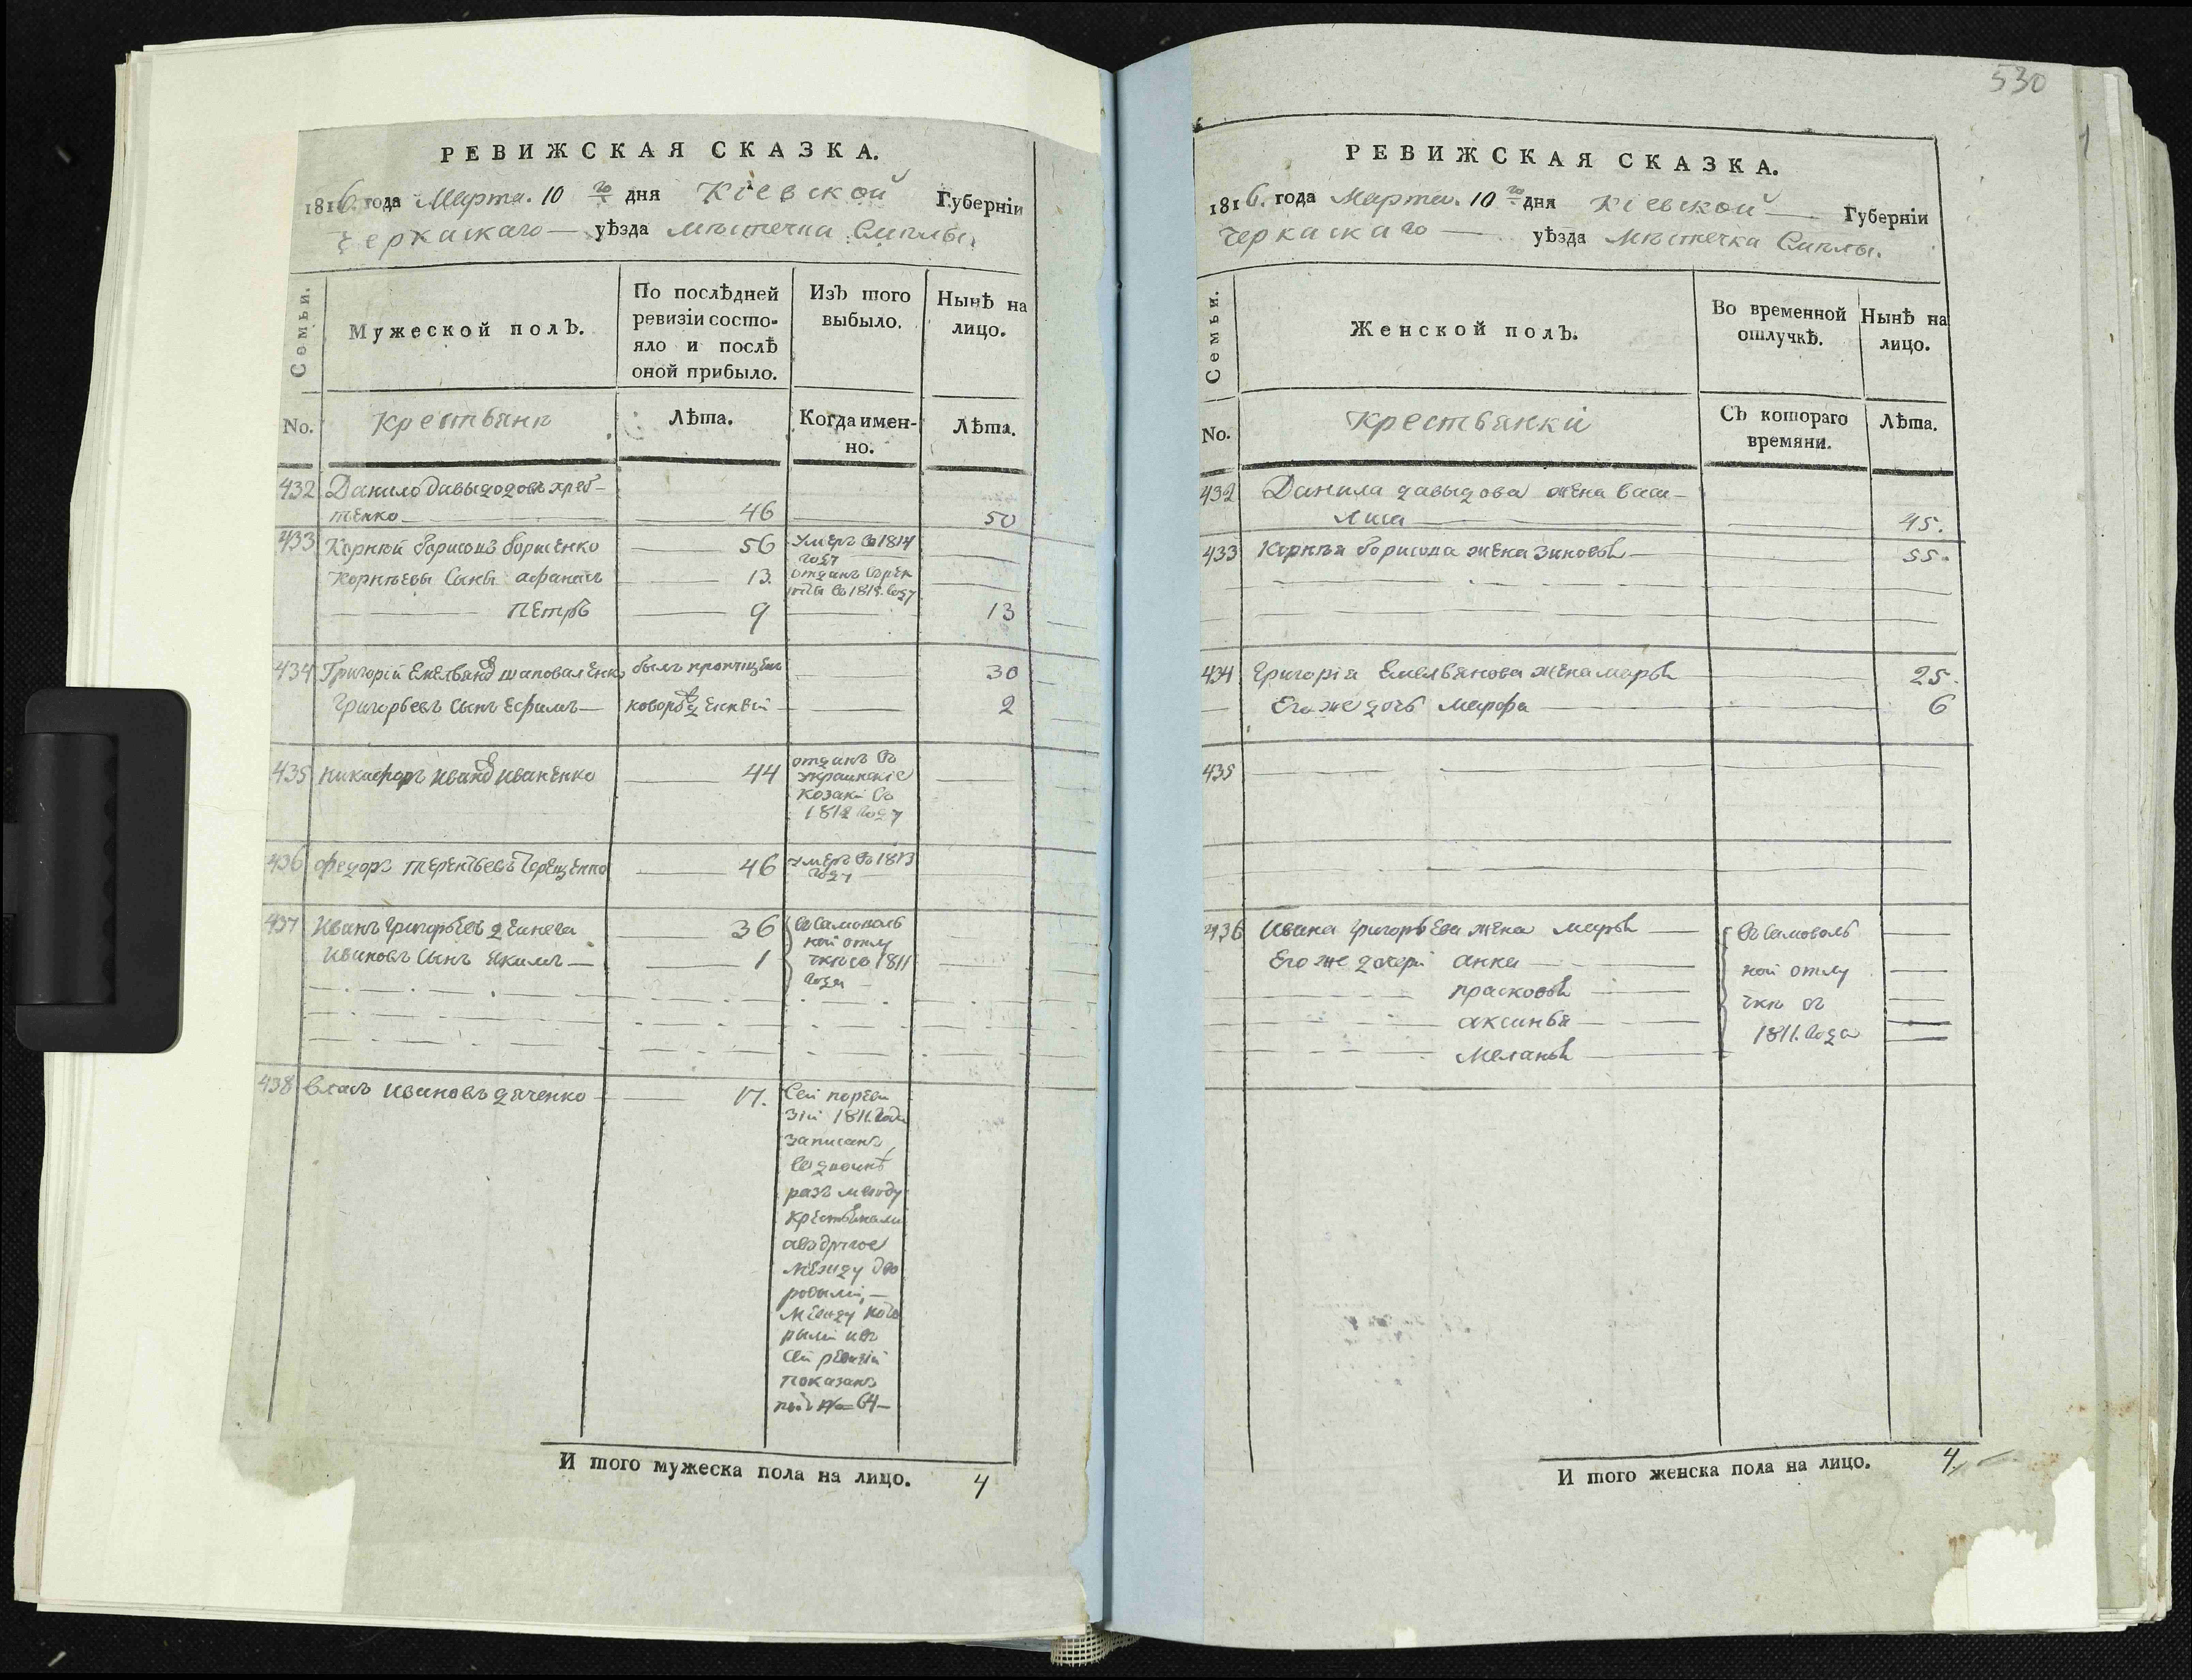 530
РЕВИЖСКАЯ СКАЗКА.
1816. года Марта. 10 го дня Кіевской Губерніи
Черкаскаго уѣзда мѣстечка Смѣлы.
Семьи.
Мужеской полЪ.
По послѣдней ревизіи состо-
яло и послѣ
оной прибыло.
ИзЪ того
выбыло.
Нынѣ на
лицо.
No.
Крестьянѣ
Лѣта.
Когда имен-
но.
Лѣта.
432 Данило давыдовъ хреб-
тенко 46 50
433 Корнѣй борисовъ борисенко 56 умеръ въ 1814
году
Корнѣевы Сыны афанасъ 13. отданъ въ рек
руты въ 1815. году
Петръ 9 13
434 Григорій Емельяновъ шаповаленко былъ пропущенъ 30
Григорьевъ Сынъ Ефимъ новорожденный 2
435 Никифоръ Ивановъ Иваненко 44 отданъ въ
украинскіе
козаки въ
1812 году
436 Федоръ терентьевъ терещенко 46 умеръ въ 1813
году
437 Иванъ Григорьевъ 36 в самоволь
ной отлу
чкѣ со 1811
года
Ивановъ Сынъ Якимъ 1
438 Власъ Ивановъ дяченко 17. Сей по реви
зіи 1811. года
записанъ
вдвойнѣ
разъ между
крестьянами
а в другое
между дво
ровыми,
между кото
рыми и въ
сей ревизіи
показанъ
под № 64
И того мужеска пола на лицо. 4
РЕВИЖСКАЯ СКАЗКА.
1816. года Марта. 10 го дня Кіевской Губерніи
Черкаскаго уѣзда мѣстечка Смѣлы.
Семьи.
Женской полЪ.
Во временной
отлучкѣ.
НынѣЪ на
лицо.
No.
Крестьянки
СЪ котораго
времяни.
Лѣта.
432 Данила давыдова жена васи-
лиса 45.
433 Корнѣя борисова жена зиновья 55.
434 Григорія Емельянова жена марья 25.
Его же дочь марфа 6
435
436 Ивана Григорьева жена марья въ самоволь
Его же дочери анна ной отлу
прасковья чкѣ съ
аксинья 1811. года
меланья
И того женска пола на лицо. 4